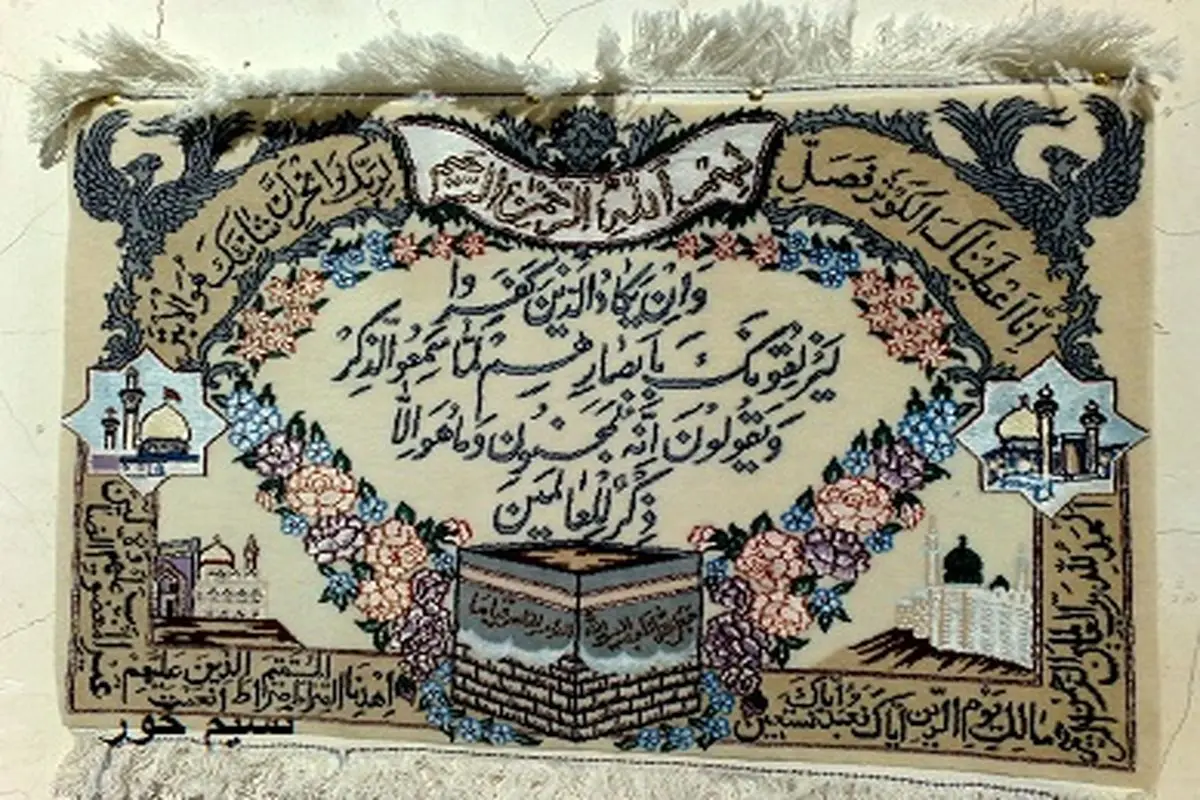 بسم الله الرحمن الرحیم
انا اعطیناک الکوثر فصل
لربک وانحر ان شانئک هو لابتر
وَاِن یَکادُ الَّذینَ کَفَروا
لَیُزلِقُونَکَ بِاَبصارِهِم لَمّا سَمِعُوا الذِّکرَ
وَیَقولُونَ اِنَّهُ لَمَجنُون وَماهُوَ اِلّا
ذِکرٌ لِلعالَمینَ
الحمد لله رب العالمین الرحمن الرحیم
مالک یوم الدین ایاک نعبد وایاک نستعین
اهدنا الصراط المستقیم صراط الذین انعمت علیهم
غیر المغضوب علیهم ولا الضالین
نسیم خور